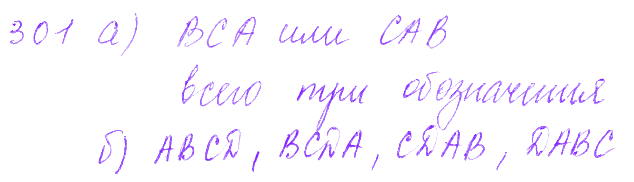 301 а) BCA или CAB
всего три обозначения
б) ABCD, BCDA, CDAB, DABC